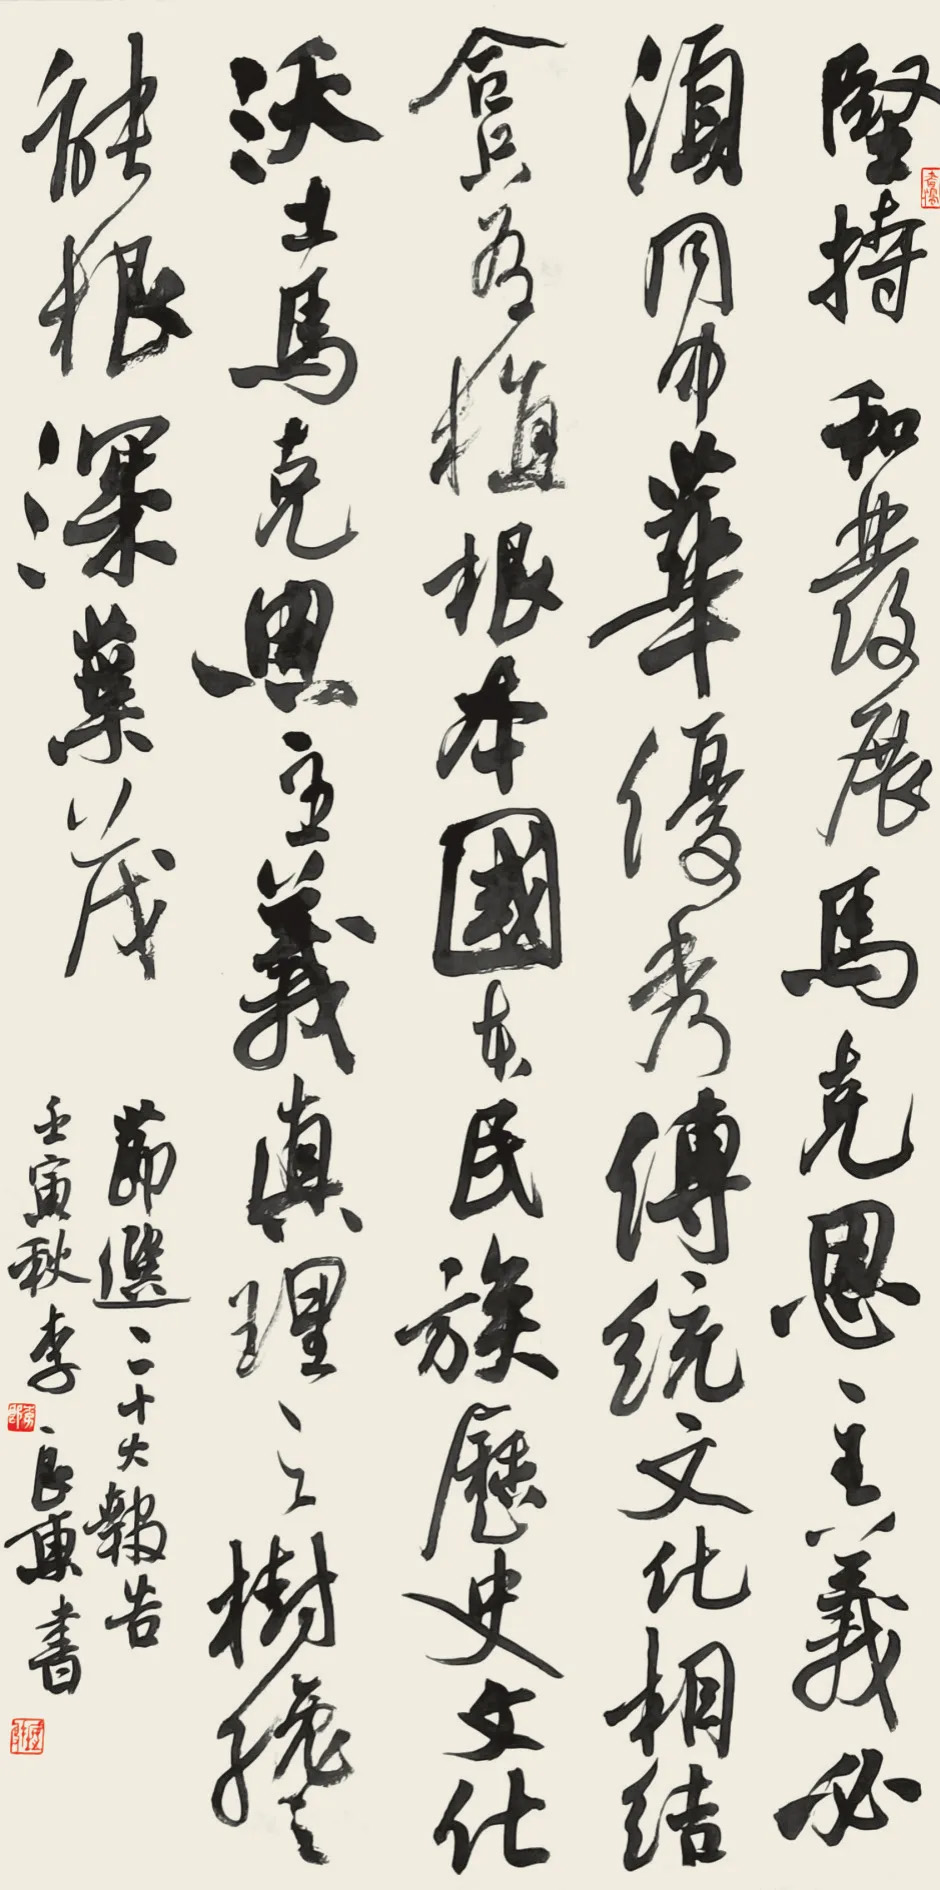 堅持和發展馬克思主義必
須同中華優秀傳統文化相結
合只有植根本國本民族歷史文化
沃土馬克思主義真理之樹纔
能根深葉茂
節選二十大報告
壬寅秋李良東書